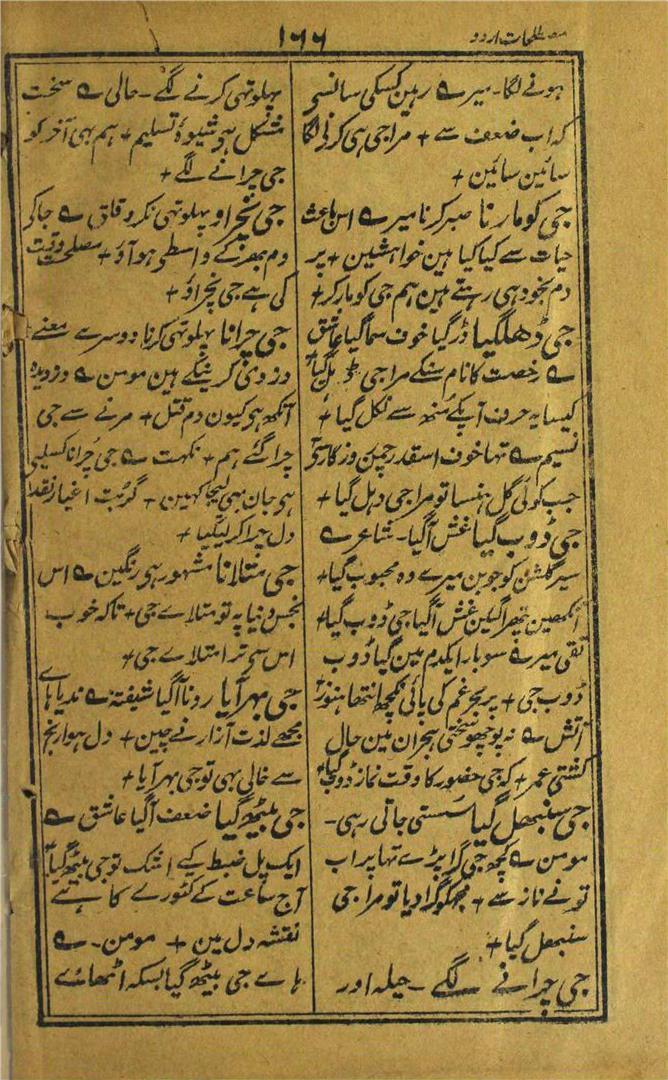 مصطلحات اردو
۱۶۶
ہونے لگا۔ میر ؎ رہین کسکی سانسیں
کہ اب ضعف سے + مراجی ہی کرنی لگا
سائین سائین +
جی کو مارنا صبر کرنا میر ؎ اس باعث
حیات سے کیا کیا ہین خواہشین + پر
دم بخود ہی رہتے ہین ہم جی کو مار کر +
جی ڈھلگیا ڈر گیا خوف سما گیا عاشق
؎ رخصت کا نام سنکے مراجی ڈہل گیا +
کیسا یہ حرف آپکے منھ سے نکل گیا +
نسیم ؎ تہا خوف اسقدر چمن روزگار
جب کوئی گل ہنسا تو مراجی دہل گیا +
جی ڈوب گیا غش آگیا۔ شاعر ؎
سیر گلشن کو جو بن میرے وہ محبوب گیا +
آنکھین پتھرا گئین غش آگیا جی ڈوب گیا +
تقی میر ؎ سو بار ایکدم مین گیا ڈوب
ڈوب جی + پر بحر غم کی پائی نکچھ انتہا ہنوز
آتش ؎ نہ پوچھو سختی ہجران مین حال
کشتی عمر + کہ جی حضور کا وقت نماز ڈوب گیا +
جی سنبھل گیا سستی جاتی رہی۔
مومن ؎ کچھ جی گرا پڑے تہا پر اب
تونے ناز سے + مجھکو گرا دیا تو مراجی
سنبھل گیا +
جی چرانے لگے۔ حیلہ اور
پہلوتہی کرنے لگے۔ حالی ؎ سخت
مشکل ہو شیوۂ تسلیم + ہم بہی آخر کو
جی چرانے لگے +
جی نچراو پہلوتہی نکرو قلق ؎ جاکے
دم بھر کے واسطی ہو آؤ + مصلحت وقت
کی ہے جی نچراؤ +
جی چرانا پہلوتہی کرنا دوسرے معنے
دزدی کرنیکے ہین مومن ؎ دزدیدہ
آنکھ ہی کیون دم قتل + مرنے سے جی
چرا گئے ہم + نکہت ؎ جی چرانا کسلیے
ہی جان بہی لیجا کہین + گر بت اغیار نقد
دل چرا کر لیگیا +
جی متلانا مشہور ہی رنگین ؎ اس
نجس دنیا پہ تو متلاے جی + تاکہ خوب
اس سی ترا متلاے جی +
جی بہر آیا رونا آگیا شیفتہ ؎ ندیا ہاے
مجھے لذت آزار نے چین + دل ہوا رنج
سے خالی بہی تو جی بہر آیا +
جی بیٹھ گیا ضعف آگیا عاشق ؎
ایک پل ضبط کیے اشک تو جی بیٹھ گیا
آج ساعت کے کٹورے کا ہے
نقشہ دل مین + مومن۔ ؎
ہاے جی بیٹھ گیا بسکہ اٹھائے